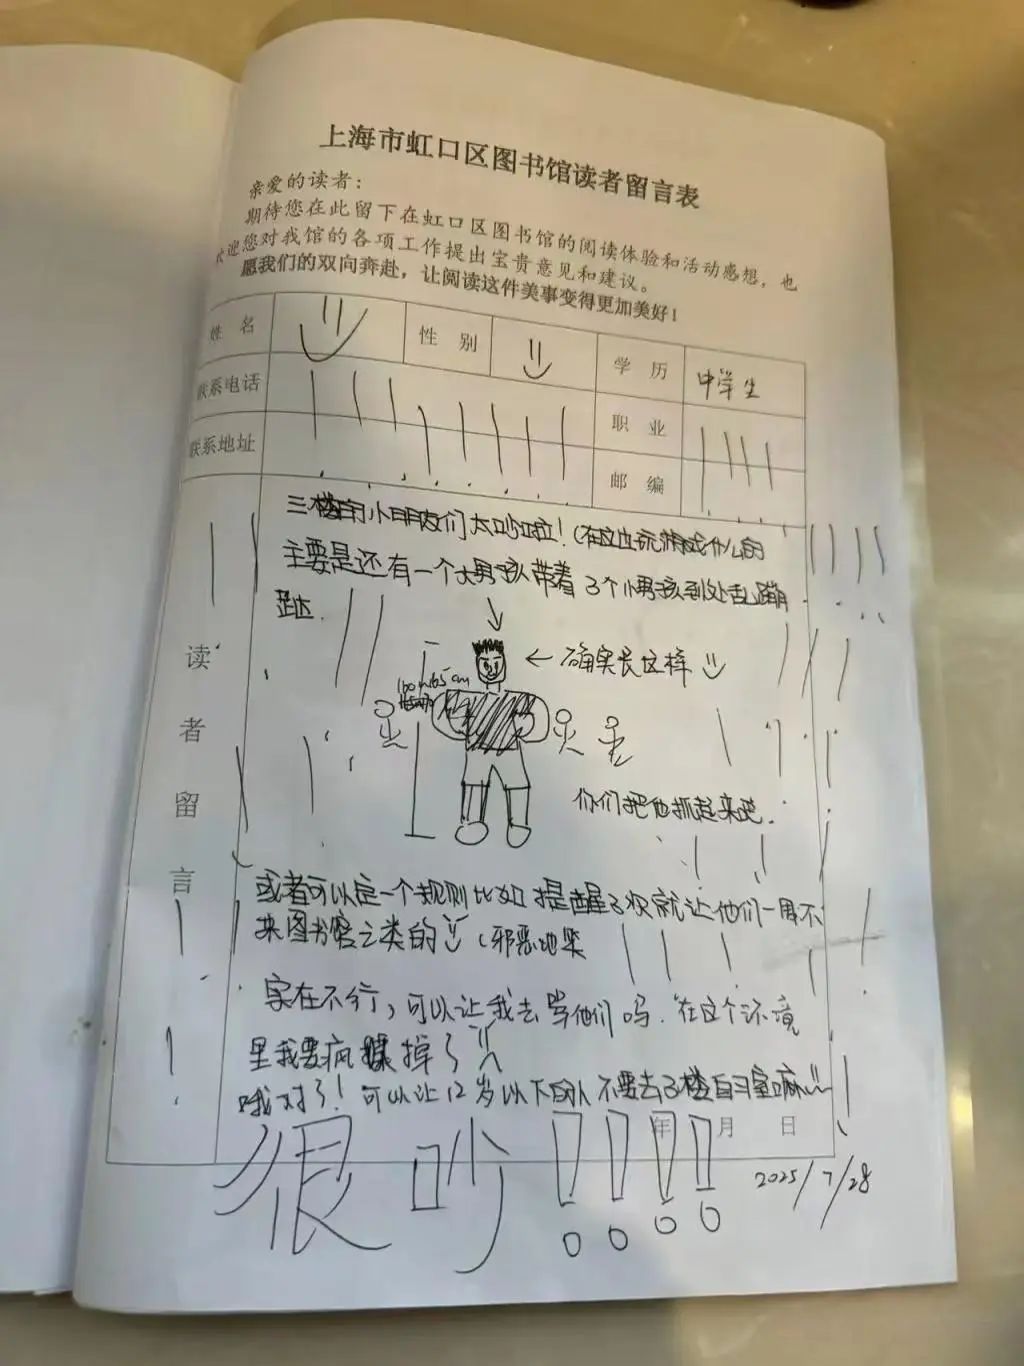 上海市虹口区图书馆读者留言表
亲爱的读者：
期待您在此留下在虹口区图书馆的阅读体验和活动感想，也
欢迎您对我馆的各项工作提出宝贵意见和建议。
愿我们的双向奔赴，让阅读这件美事变得更加美好！
姓 名
性 别
学 历 中学生
联系电话
职 业
联系地址
邮 编
读者留言
三楼的小朋友们太吵啦！(在这边玩游戏什么的
主要是还有一个大男孩带着3个小男孩到处乱蹦
跶.
← 确实长这样
165cm
你们把他抓起来吧.
或者可以定一个规则比如提醒3次就让他们一周不
来图书馆之类的 (邪恶地笑
实在不行，可以让我去 他们吗.在这个环境
里我要疯 掉了
哦对了！可以让12岁以下的人不要去3楼自习室嘛
年 月 日
很吵！！！！
2025/7/28